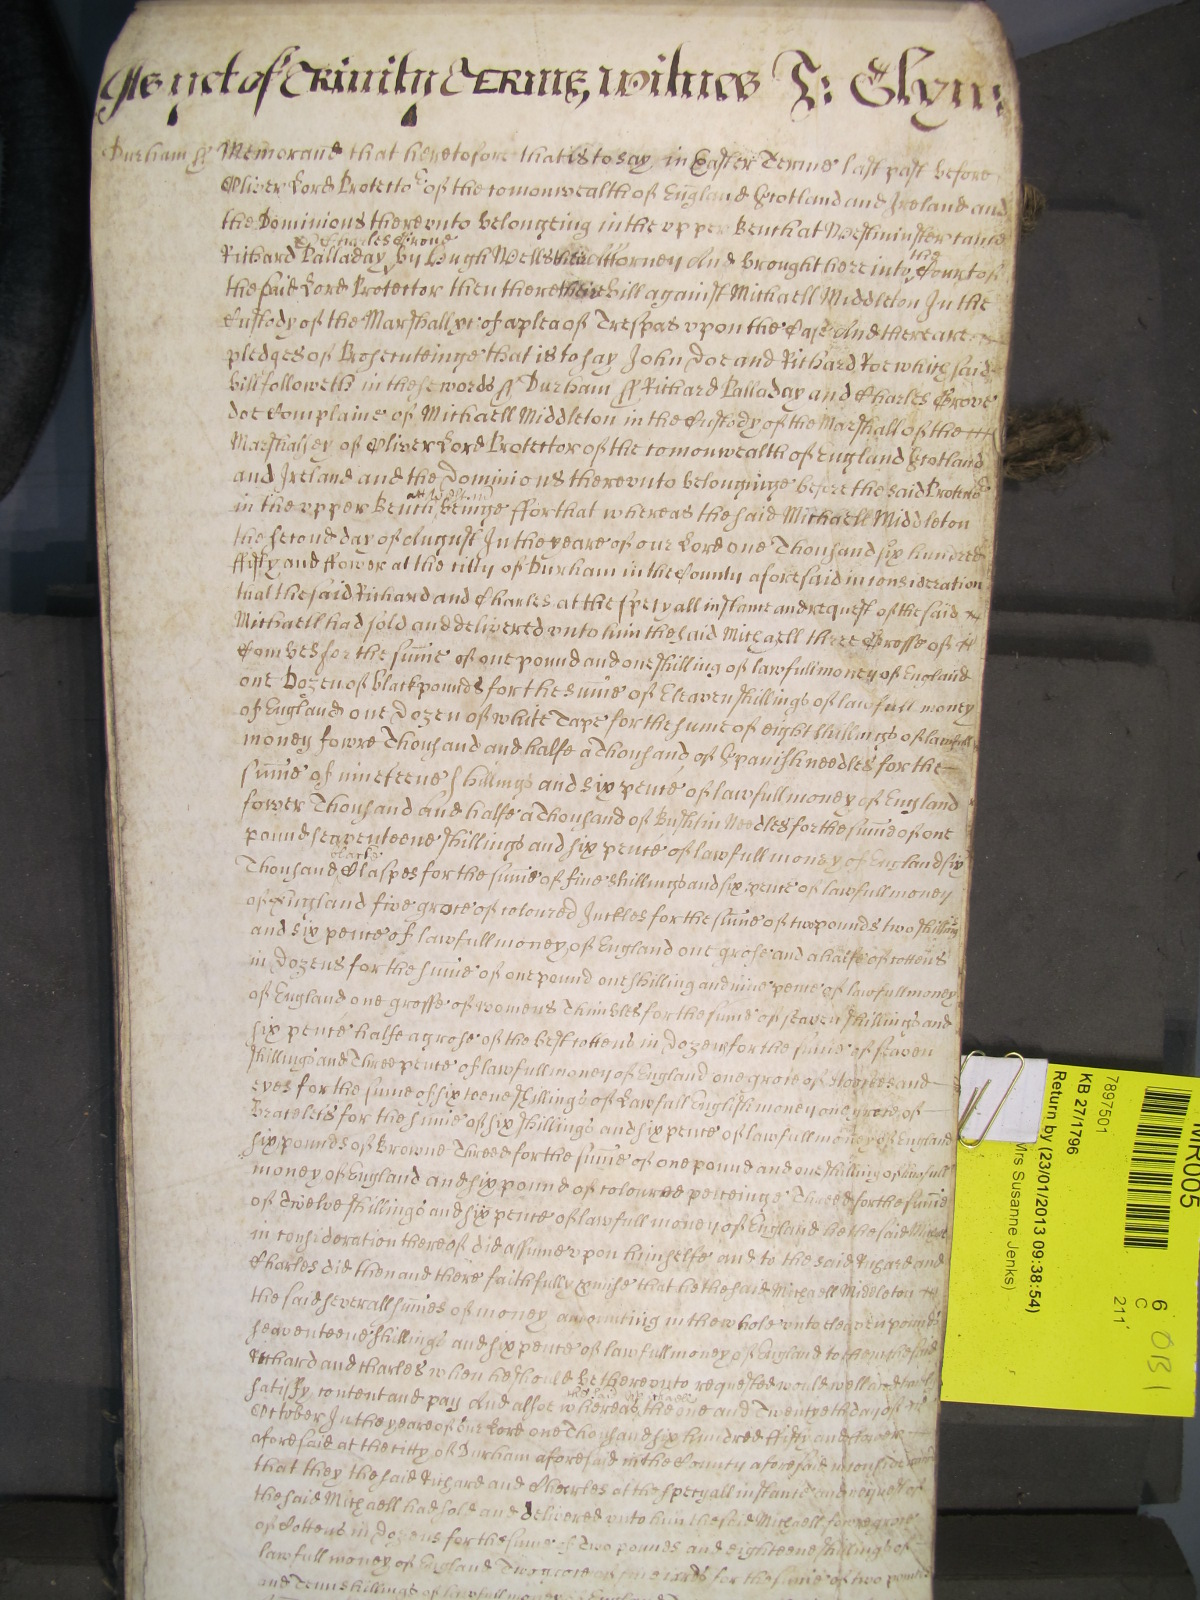 As yet of Trinity Terme, witnes J: Glyn:
Durham ss Memorand that heretofore that is to say in Easter Terme last past before
Oliver Lord Protector of the comonwealth of England Scotland and Ireland and
the Dominions therevnto belongeing in the vpper Bench at Westminster came
Richard Palladay and Charles Grove by Hugh Wells their Attorney And brought here into this Court of
the said Lord Protector then there their bill against Michaell Middleton In the
Custody of the Marshall &c of a plea of Trespas vpon the Case And there are
pledges of Prosecuteinge that is to say John Doe and Richard Roe which said
bill followeth in these words ss Durham ss Richard Palladay and Charles Grove
doe Complaine of Michaell Middleton in the Custody of the Marshall of the
Marshalsey of Oliver Lord Protector of the comonwealth of England Scotland
and Ireland and the Dominions therevnto belonginge before the said Protector
in the vpper Bench att Westmr beinge ffor that whereas the said Michaell Middleton
the second day of August In the yeare of our Lord one Thousand six hundred
ffifty and ffower at the citty of Durham in the County aforesaid in consideration
that the said Richard and Charles at the specyall instance and request of the said
Michaell had sold and delivered vnto him the said Michaell three Grosse of
Combes for the sume of one pound and one shilling of lawfull money of England
one Dozen of black pounds for the sume of Eleaven shillings of lawfull money
of England one Dozen of white Tape for the sume of eight shillings of lawfull
money fowre Thousand and halfe a Thousand of Spanish needles for the
sume of nineteene shillings and six pence of lawfull money of England
fower Thousand and halfe a Thousand of Needles for the sume of one
pound seaventeene shillings and six pence of lawfull money of England six
Thousand black Claspes for the sume of five shillings and six pence of lawfull money
of England five groce of coloured Inckles for the sume of two pounds two shillings
and six pence of lawfull money of England one grose and a halfe of cottens
in Dozens for the sume of one pound one shilling and nine pence of lawfull money
of England one grosse of womens Thimbles for the sume of seaven shillings and
six pence halfe a grose of the best cottens in Dozens for the sume of seaven
shillings and Three pence of lawfull money of England one groce of Hookes and
eyes for the sume of sixteene shillings of Lawfull English money one groce of
Bracelets for the sume of six shillings and six pence of lawfull money of England
six pounds of Browne Threed for the sume of one pound and one shilling of lawfull
money of England and six pound of coloured peeceinge Threed for the sume
of Twelve shillings and six pence of lawfull money of England he the said Michaell
in consideration thereof did assume vpon himselfe and to the said Richard and
Charles did then and there faithfully promise that he the said Michaell Middleton
the said severall sumes of money amounting in the whole vnto eleaven pounds
seaventeene shillings and six pence of lawfull money of England to them the said
Richard and Charles when he should be therevnto requested would well and truly
satisfy content and pay And alsoe whereas the said Michaell the one and Twentyeth day of
October In the yeare of our Lord one Thousand six hundred ffifty and fower
aforesaid at the citty of Durham aforesaid in the County aforesaid in consideration
that they the said Richard and Charles at the specyall instance and request of
the said Michaell had sold and delivered vnto him the said Michaell fowre groce
of Cottens in Dozens for the sume of Two pounds and eighteene shillings of
lawfull money of England Two groce of for the sume of two pounds
and Tenn shillings of lawfull money of England
MR005
7897501
KB 27/1796
Return by (23/01/2013 09:38:54)
Mrs Susanne Jenks)
6
C
211'
OBI